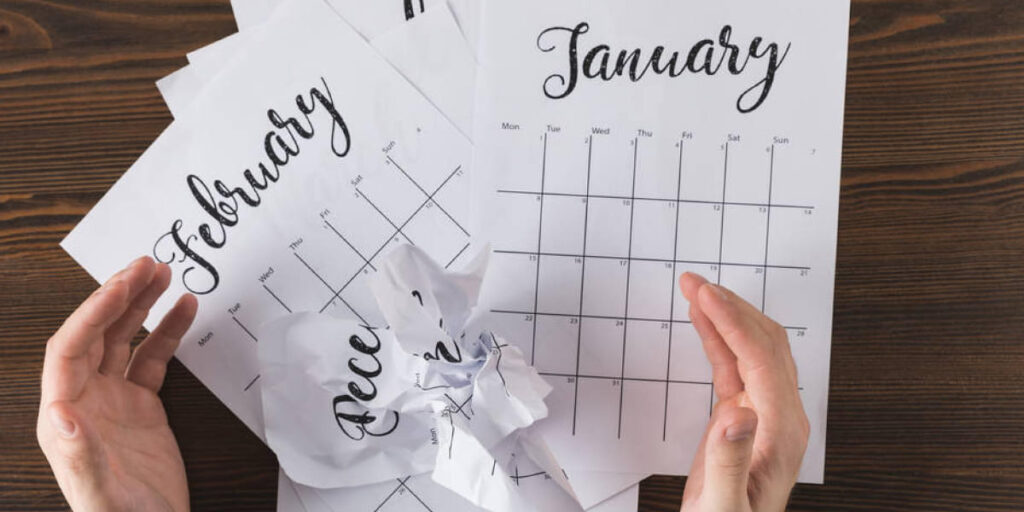 January
Mon Tue Wed Thu Fri Sat Sun
1 2 3 4 5 6 7
8 9 10 11 12 13 14
15 16 17 18 19 20 21
22 23 24 25 28
30 31
February
Mon Tue Wed Thu Fri Sat Sun
4
10 11
Dece
Mon